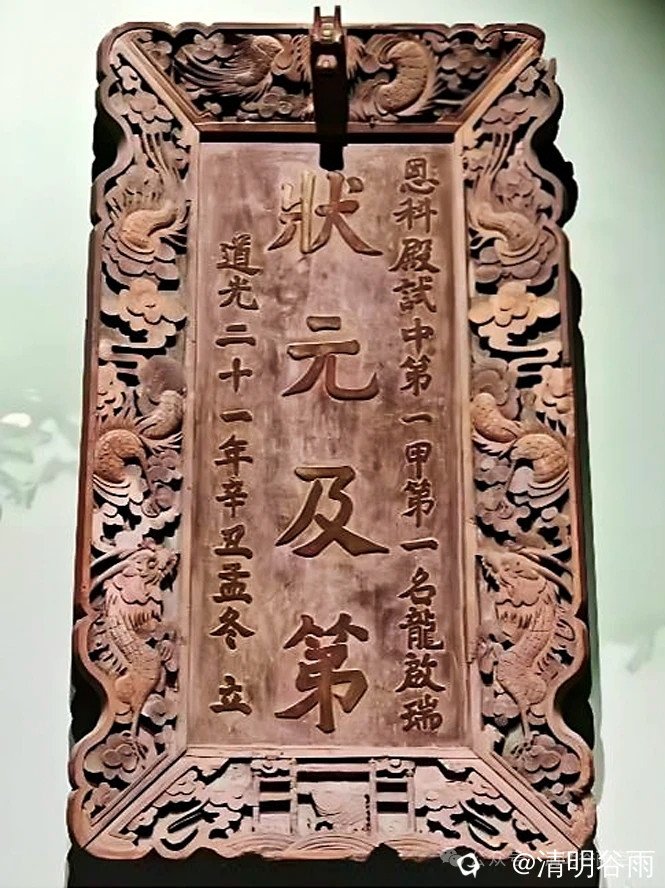 恩科殿試中第一甲第一名龍啟瑞
狀元及第
道光二十一年辛丑孟冬立
公众号
@清明谷雨